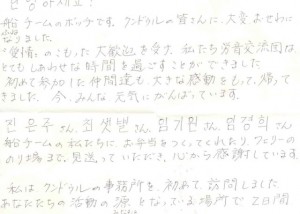 안녕하세요!
船チームのボックです。クンドゥルの皆さんに、大変おせわに
なりました。
"愛情"のこもった大歓迎を受け、私たち労音交流団は
とてもしあわせな時間を過ごすことができました
初めて参加した仲間達も、大きな感動をもって、帰って
きました。今、みんな元気にがんばっています。
진은주さん、최샛별さん、임기원さん、엄경희さん
船チームの私たちに、お弁当をつくってくれたり、フェリーの
のり場まで、見送っていただき、心から感謝しています。
私はクンドゥルの事務所を、初めて訪問しました
あなたたちの活動の源となっている場所で2日間